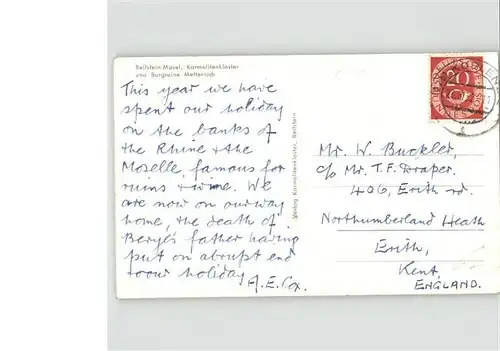 Beilstein-Mosel, Karmelitenkloster
und Burgruine Metternich
This year we have
spent our holiday
on the banks of
the Rhine & the
Moselle, famous for
ruins & wine. We
are now on our way
home, the death of
Beryl's father having
put an abrupt end
to our holiday
A.E. Cox.
Verlag Karmelitenkloster, Beilstein
20
Mr. W. Buckler,
c/o Mr. T.F. Draper.
406, Erith rd.
Northumberland Heath
Erith,
Kent.
ENGLAND.